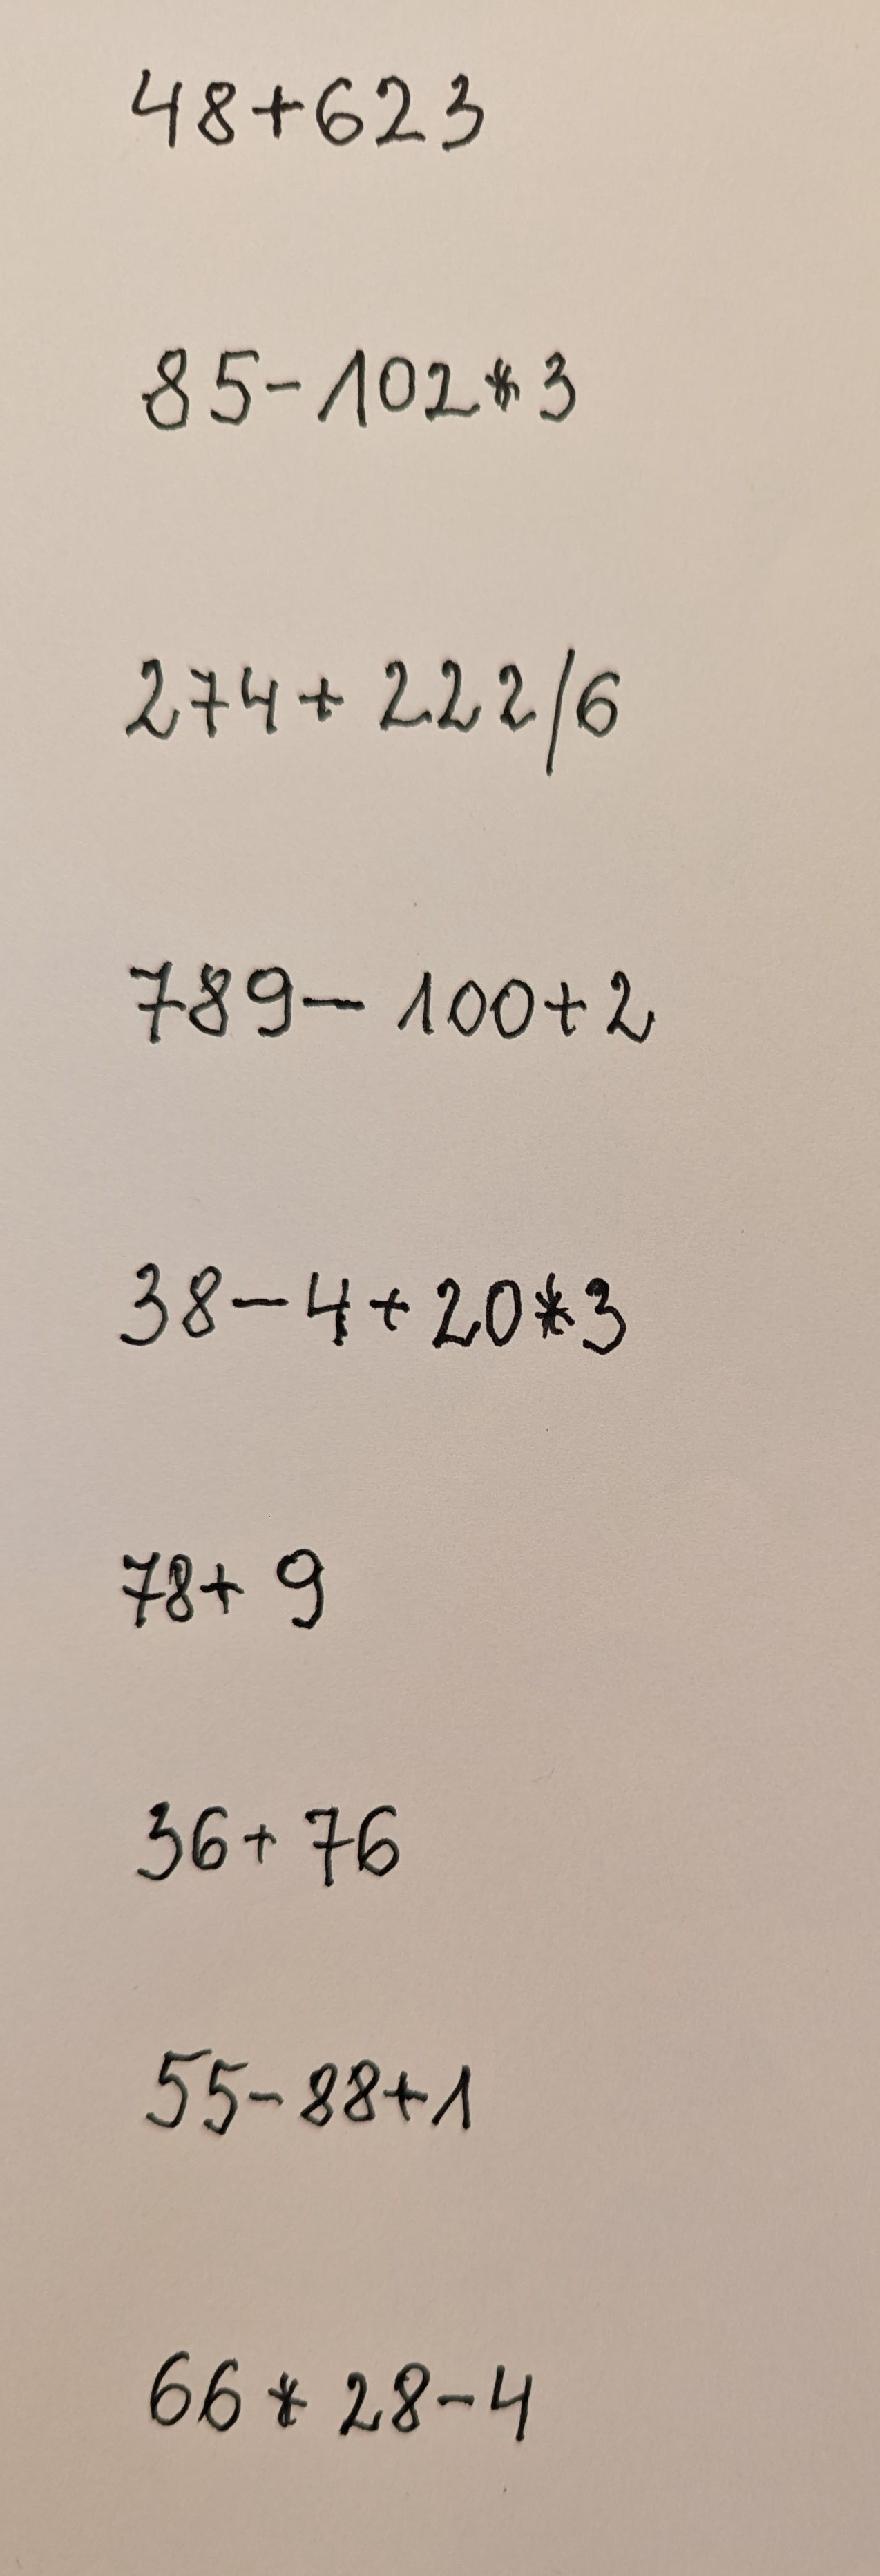 48+623
85-102*3
274+222/6
789-100+2
38-4+20*3
78+9
36+76
55-88+1
66*28-4